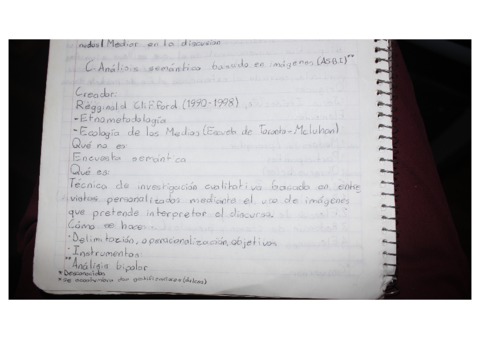 nados/Mediar en la discusión
C-Análisis semántico basado en imágenes (ASBI)**
Creador:
Régginald Cliffford (1990-1998)
-Etnometodología
-Ecología de los Medios (Escuela de Toronto-McLuhan)
Qué no es
Encuesta semántica
Qué es:
Técnica de investigación cualitativa basado en entre
vistas personalizadas mediante el uso de imágenes
que pretende interpretar el discurso.
Cómo se hace:
-Delimitación, operacionalización, objetivos
-Instrumentos:
**Análisis bipolar
*Desconocidos
*Se acostumbra dar gratificaciones